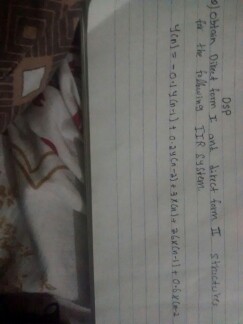 DSP
a) Obtain Direct form I and direct form II structures
for the following IIR system.
y(n) = -0.1y(n-1) + 0.2y(n-2) + 3x(n) + 3.6x(n-1) + 0.6x(n-2